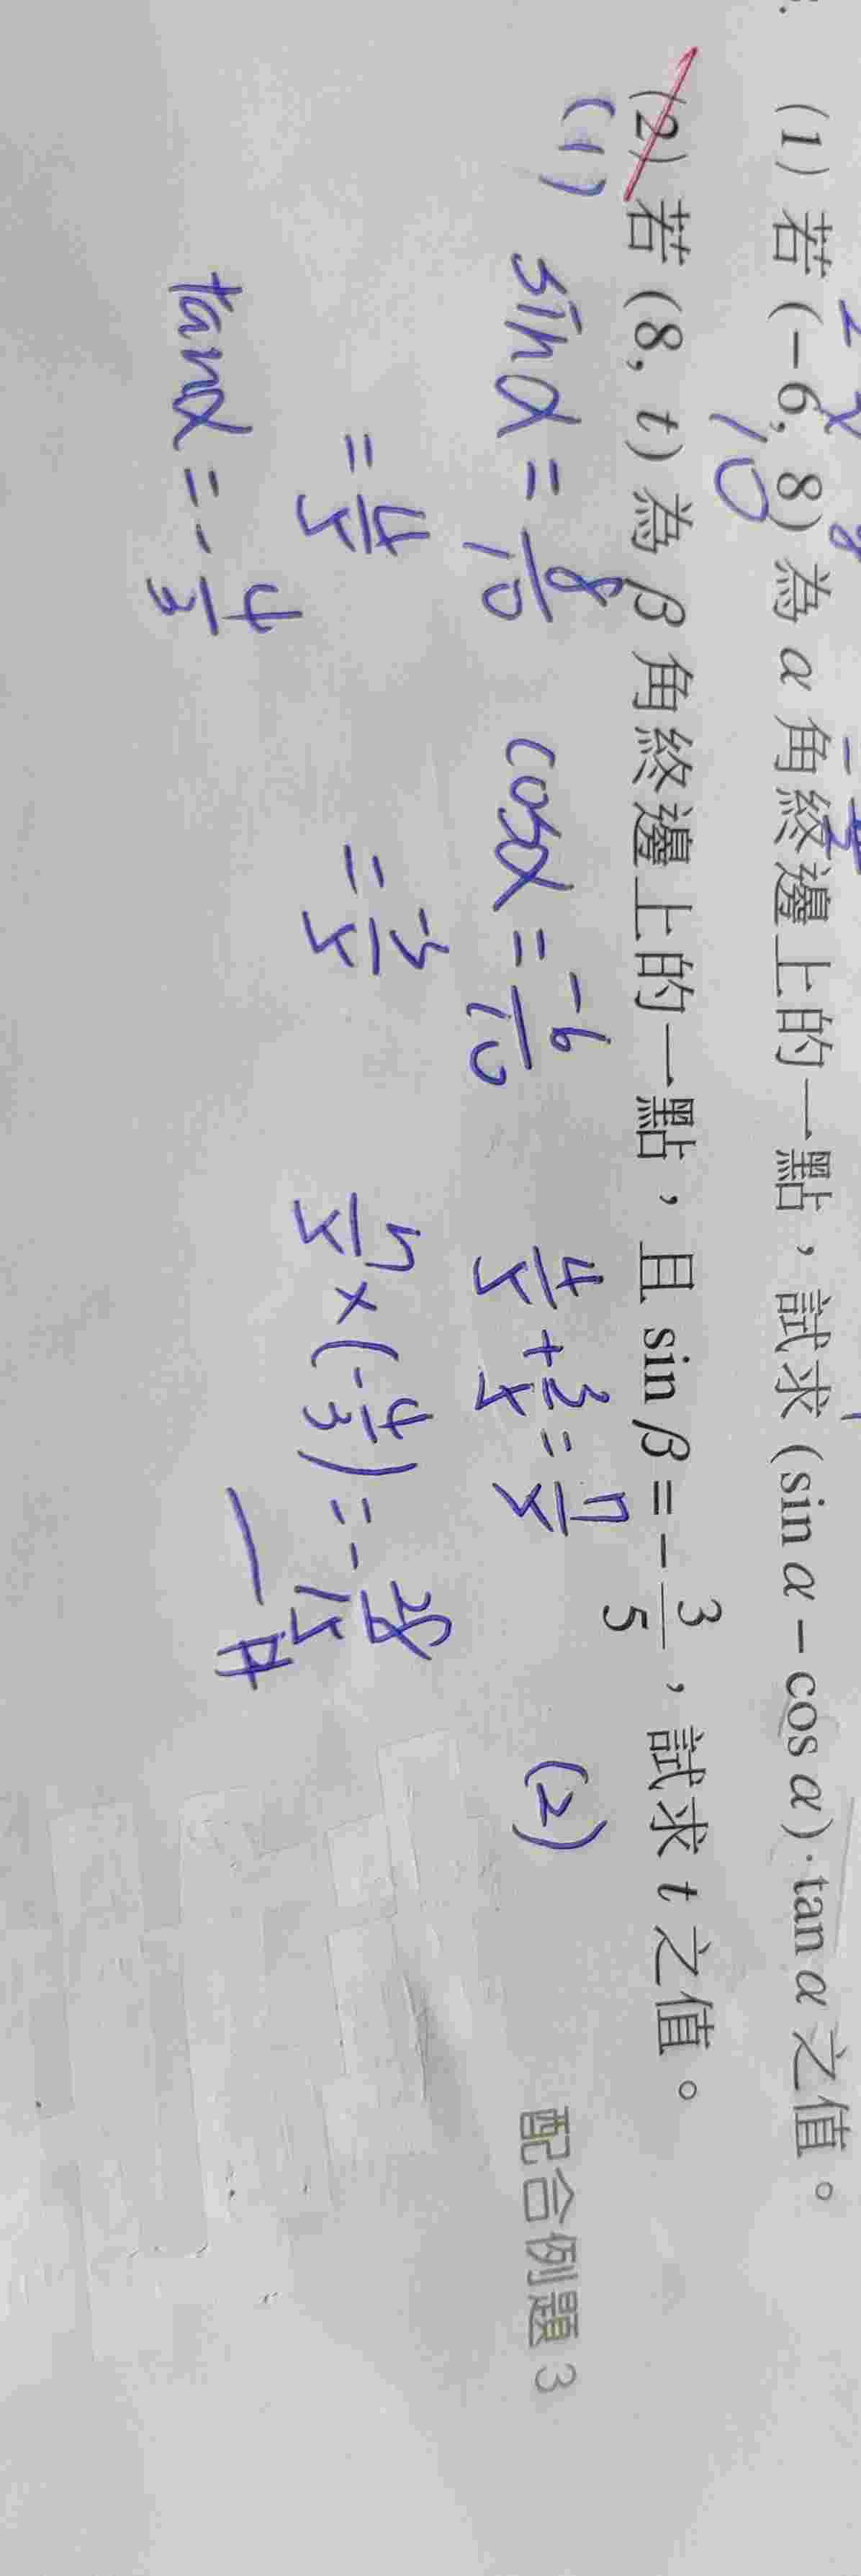 (1) 若 (−6, 8) 為 α 角終邊上的一點，試求 (sin α − cos α)·tan α 之值。
10
(2) 若 (8, t) 為 β 角終邊上的一點，且 sin β = −3/5，試求 t 之值。
配合例題 3
(1) sinα = 8/10 cosα = -6/10 4/5 + 3/5 = 7/5 (2)
= 4/5 = -3/5 7/5 × (-4/3) = -28/15 #
tanα = -4/3